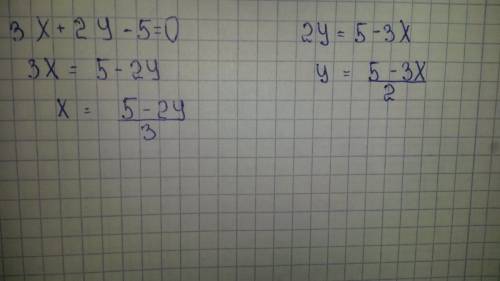 3x + 2y - 5 = 0
3x = 5 - 2y
x = (5 - 2y)/3
2y = 5 - 3x
y = (5 - 3x)/2